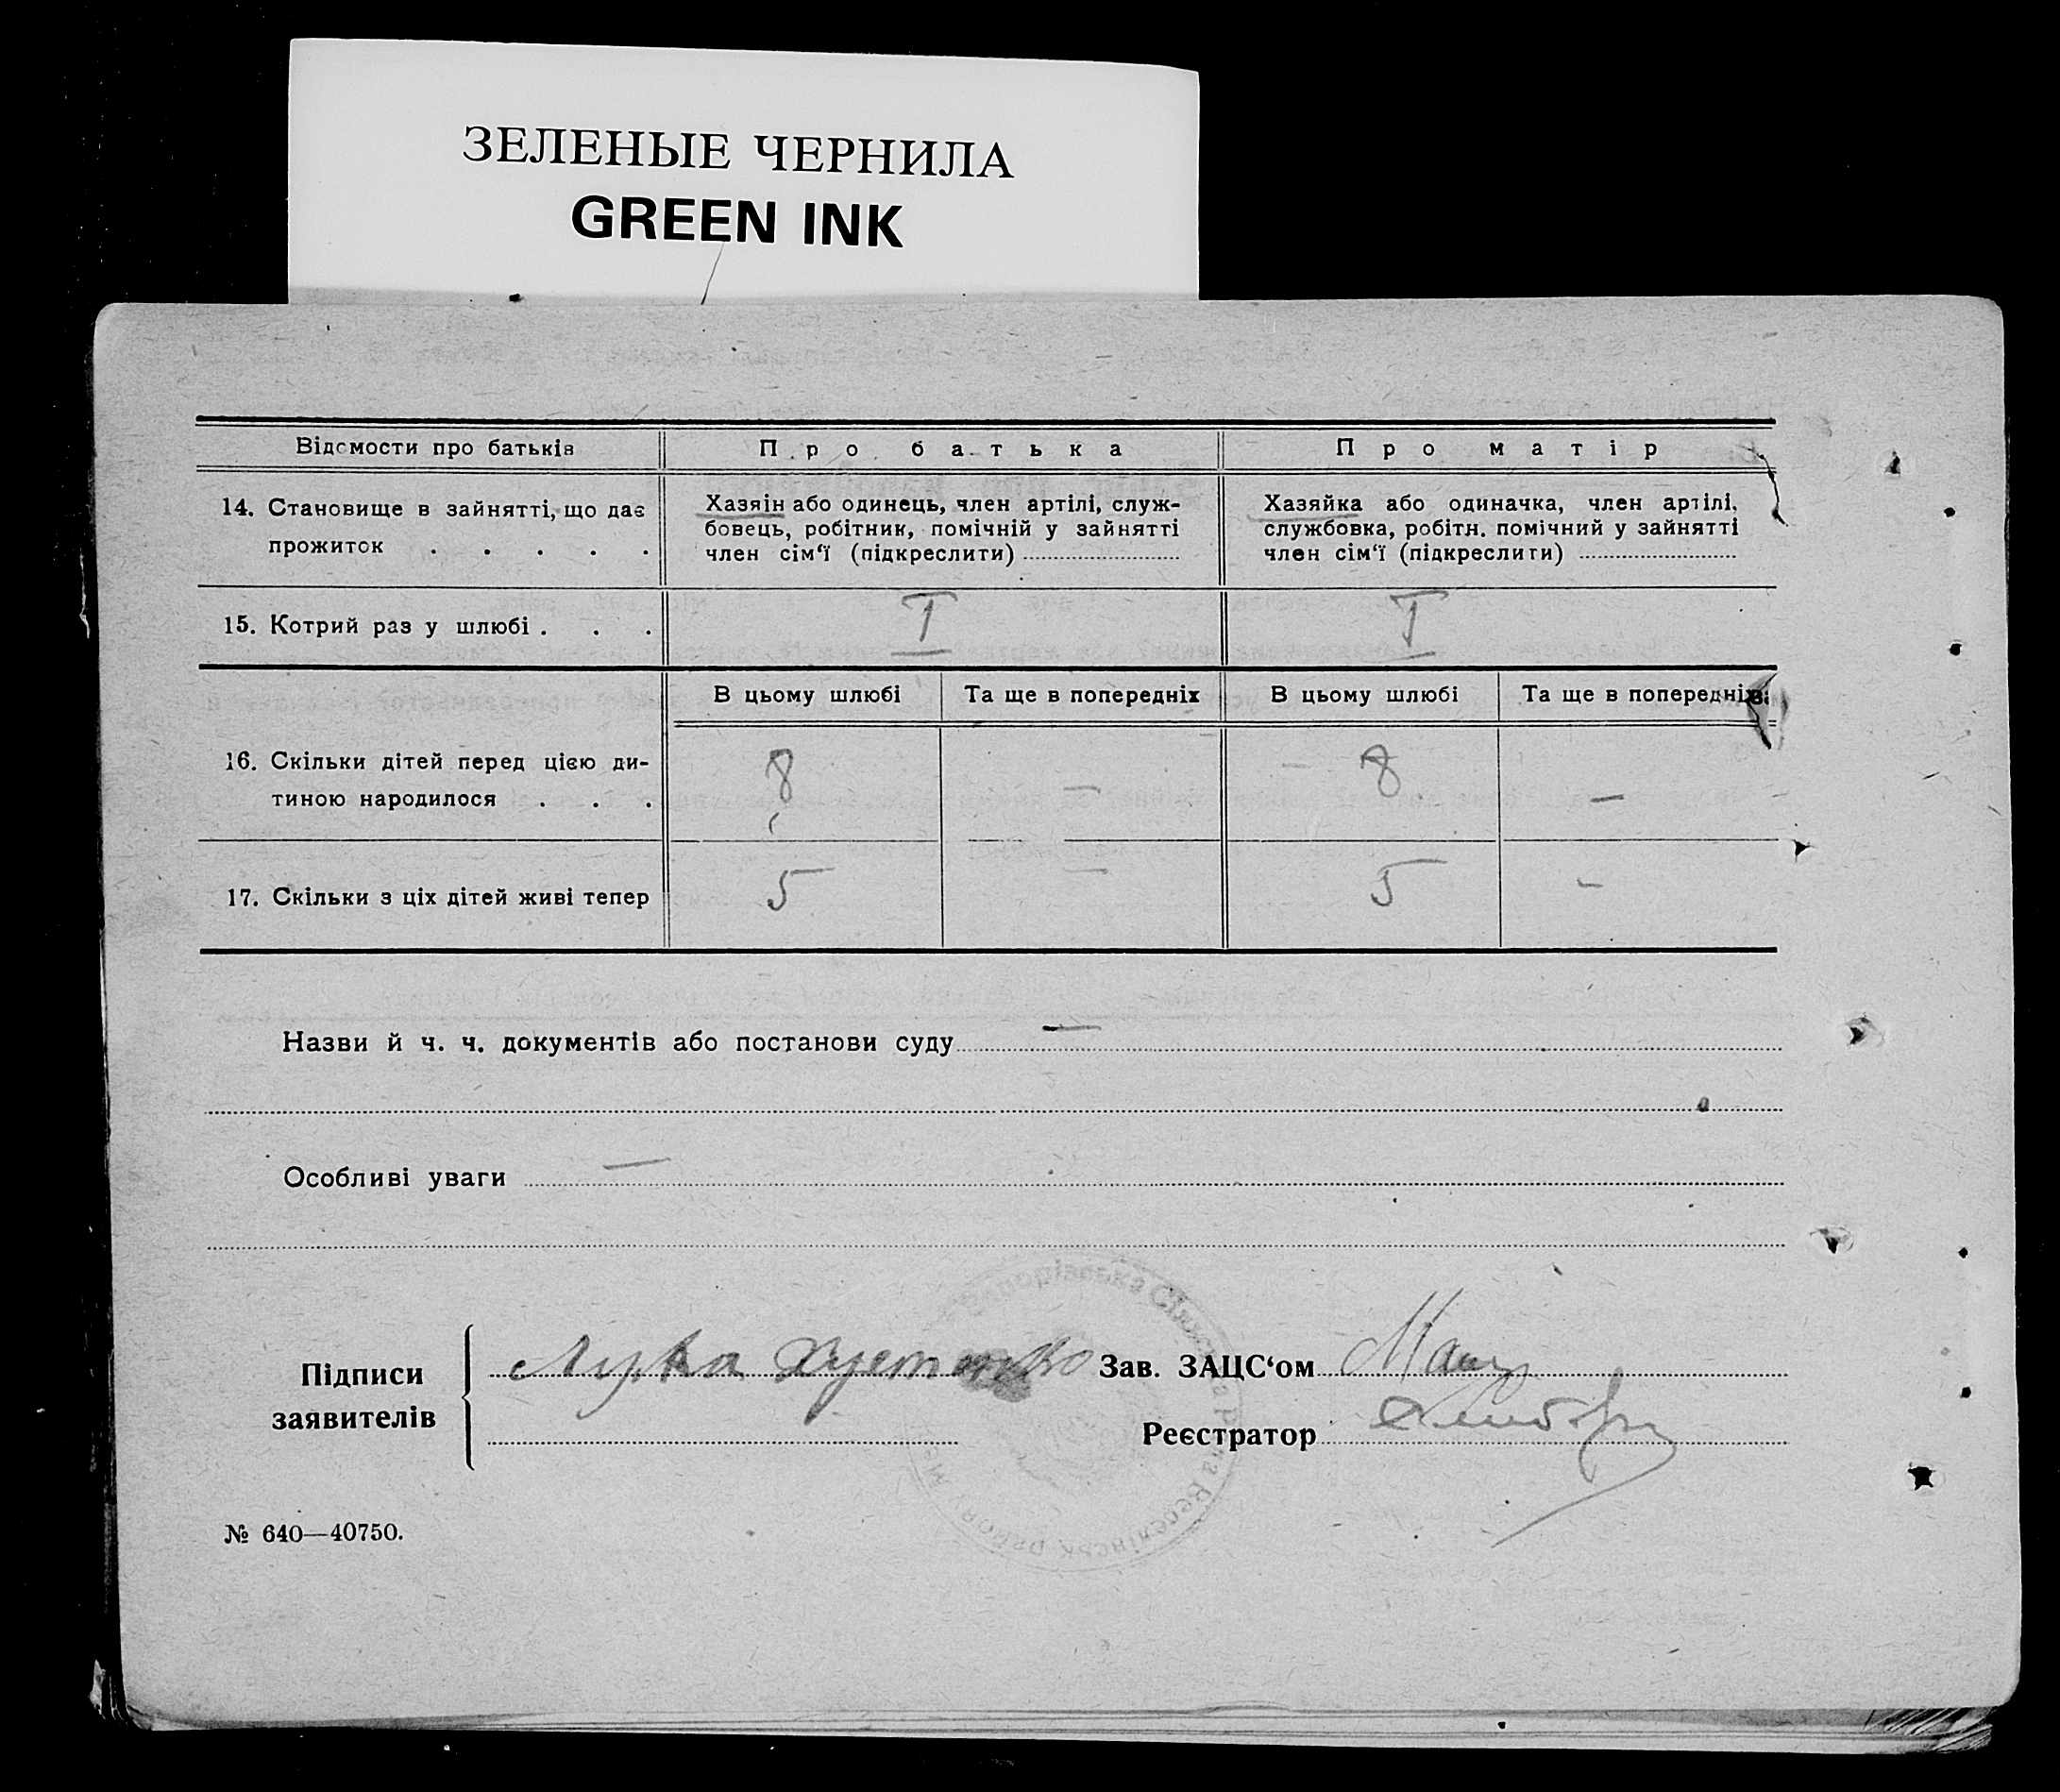 ЗЕЛЕНЫЕ ЧЕРНИЛА
GREEN INK
Відомости про батьків
Про батька
Про матір
14. Становище в зайнятті, що дає
прожиток . . . . .
Хазяін або одинець, член артілі, служ-
бовець, робітник, помічній у зайнятті
член сім‘ї (підкреслити)
Хазяйка або одиначка, член артілі,
службовка, робітн. помічний у зайнятті
член сім‘ї (підкреслити)
15. Котрий раз у шлюбі . . .
I
I
В цьому шлюбі
Та ще в попередніх
В цьому шлюбі
Та ще в попередніх
16. Скільки дітей перед цією ди-
тиною народилося . . .
8
—
8
—
17. Скільки з ціх дітей живі тепер
5
—
5
-
Назви й ч. ч. документів або постанови суду —
Особливі уваги —
Підписи
заявителів
Лука
Зав. ЗАЦС‘ом
Реєстратор
№ 640—40750.